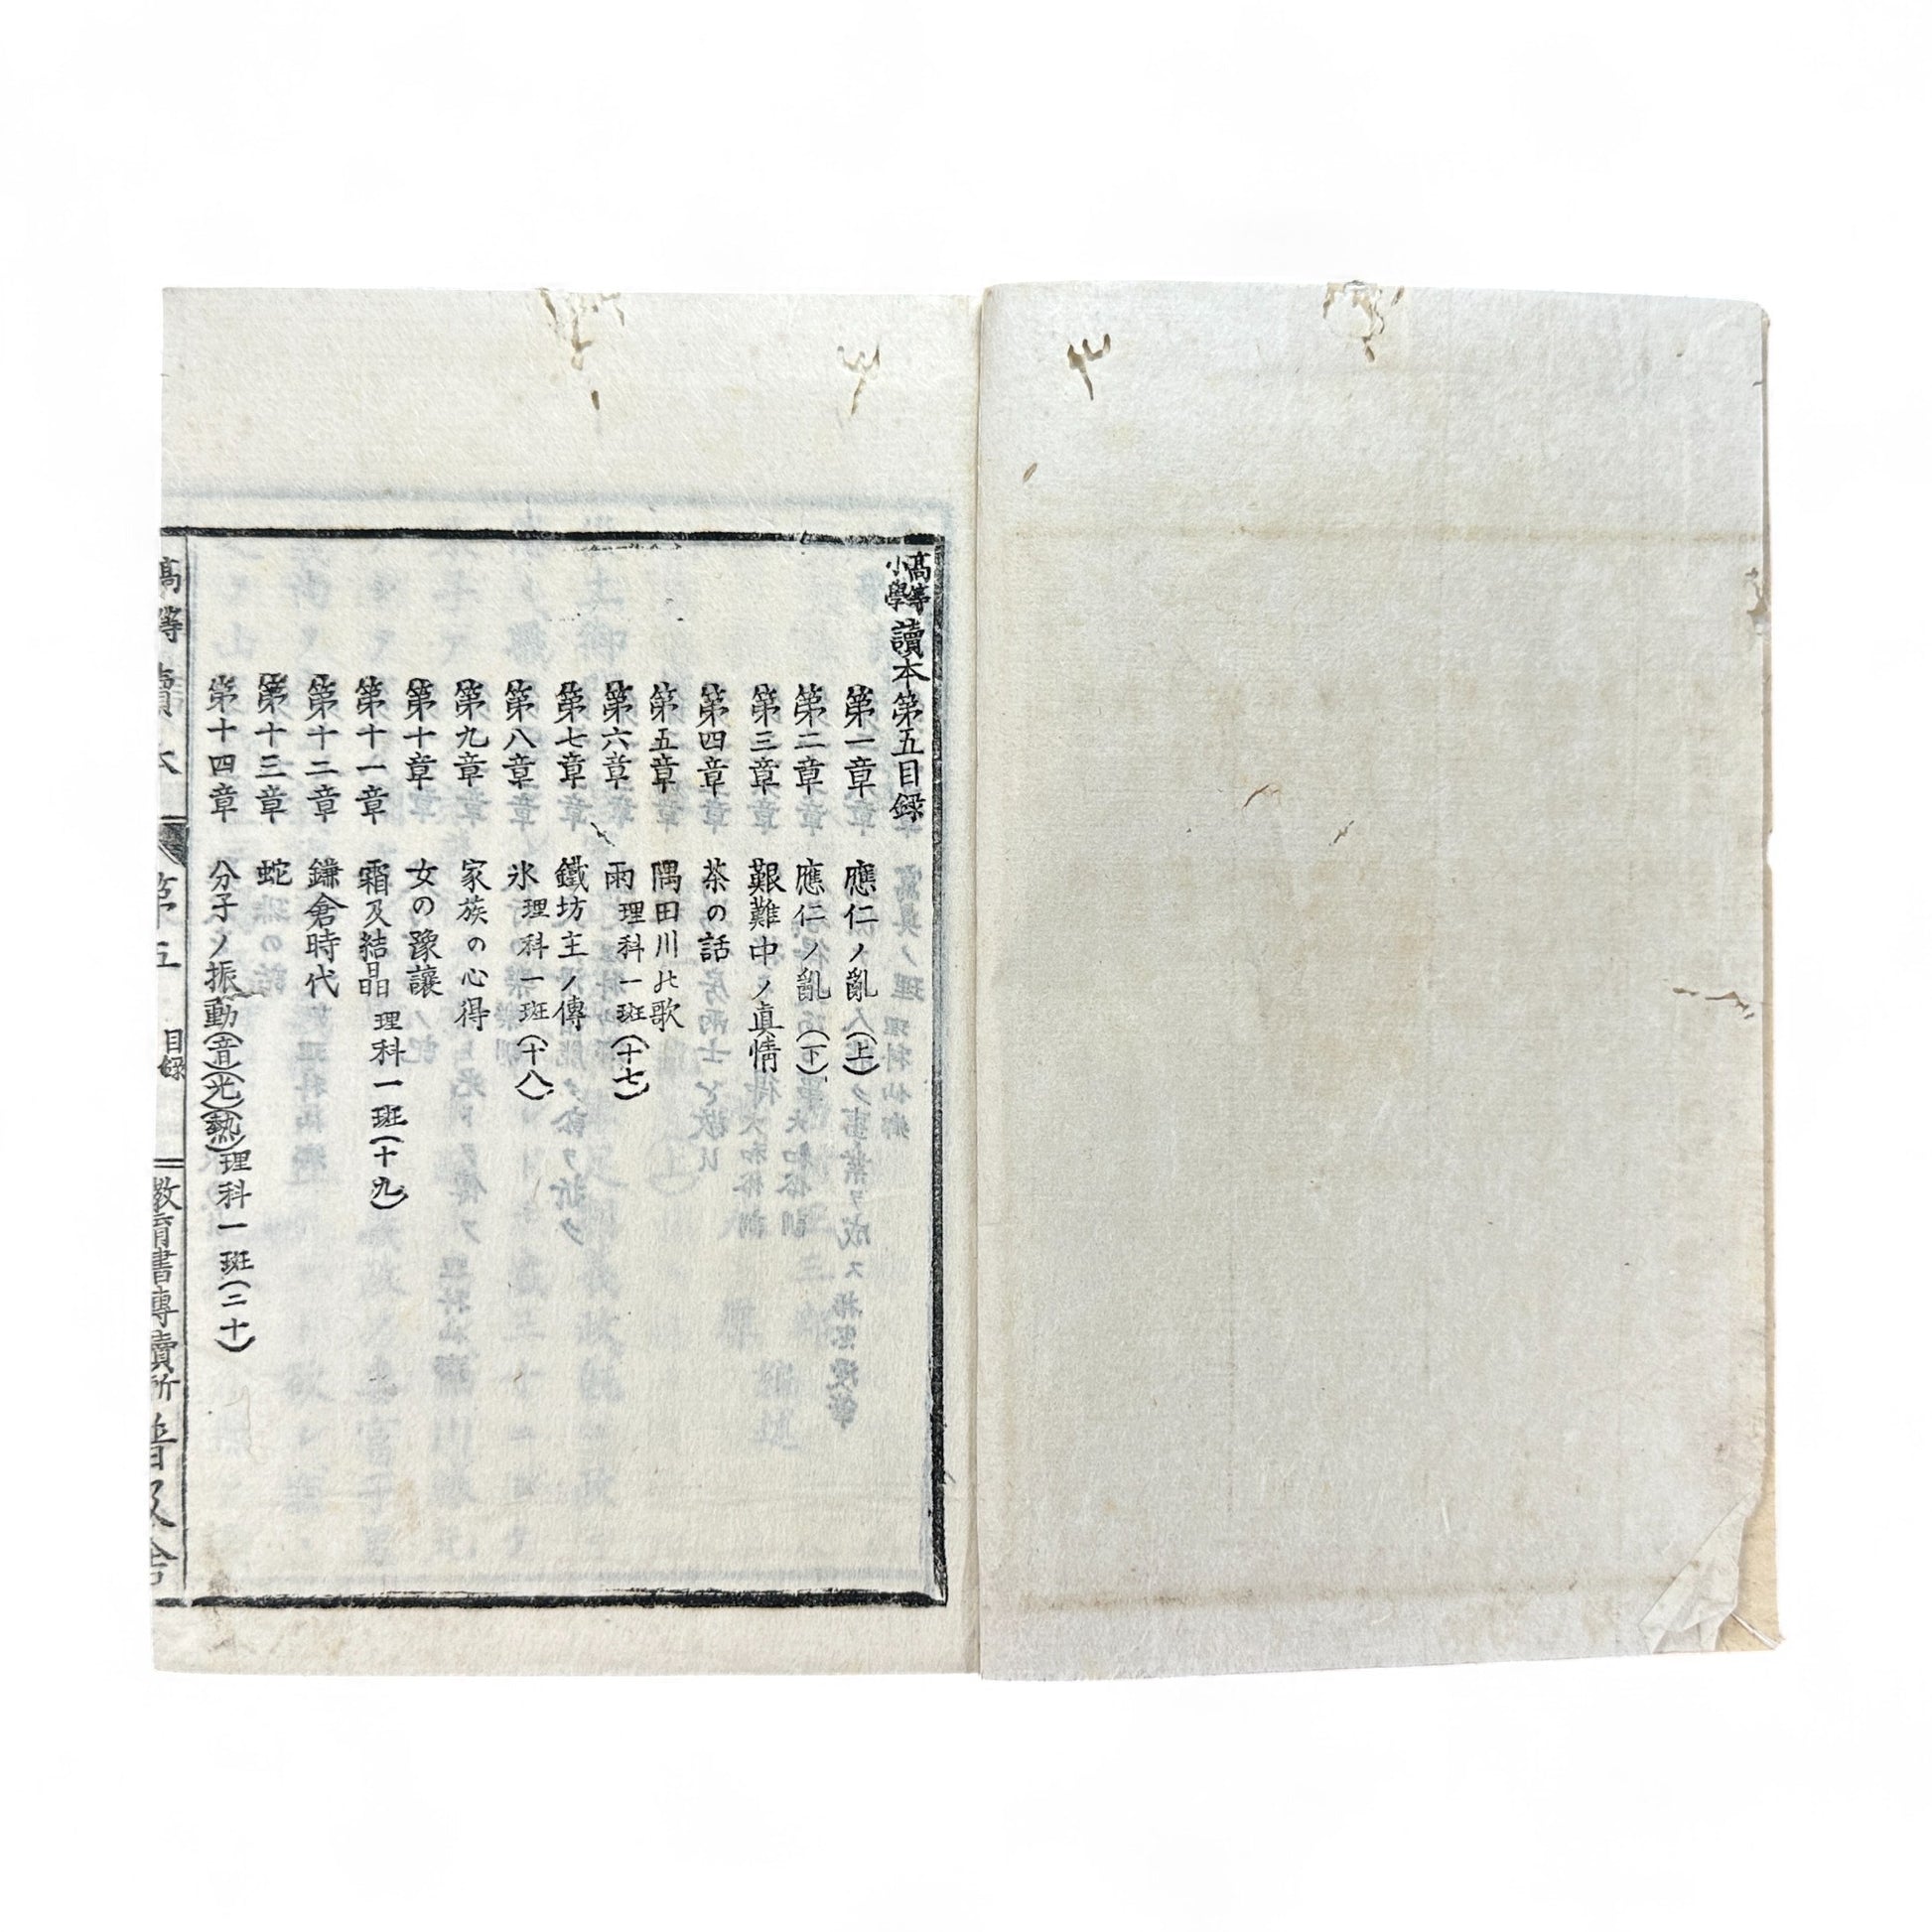 高等小學讀本第五目録
第一章 應仁ノ亂(上)
第二章 應仁ノ亂(下)
第三章 艱難中ノ真情
第四章 茶の話
第五章 隅田川の歌
第六章 雨 理科一斑(十七)
第七章 鐵坊主ノ傳
第八章 氷 理科一斑(十八)
第九章 家族の心得
第十章 女の豫讓
第十一章 霜及結晶 理科一斑(十九)
第十二章 鎌倉時代
第十三章 蛇
第十四章 分子ノ振動(音)(光)(熱)理科一斑(二十)
高等讀本 第五 目録 教育書專賣所 普及舍